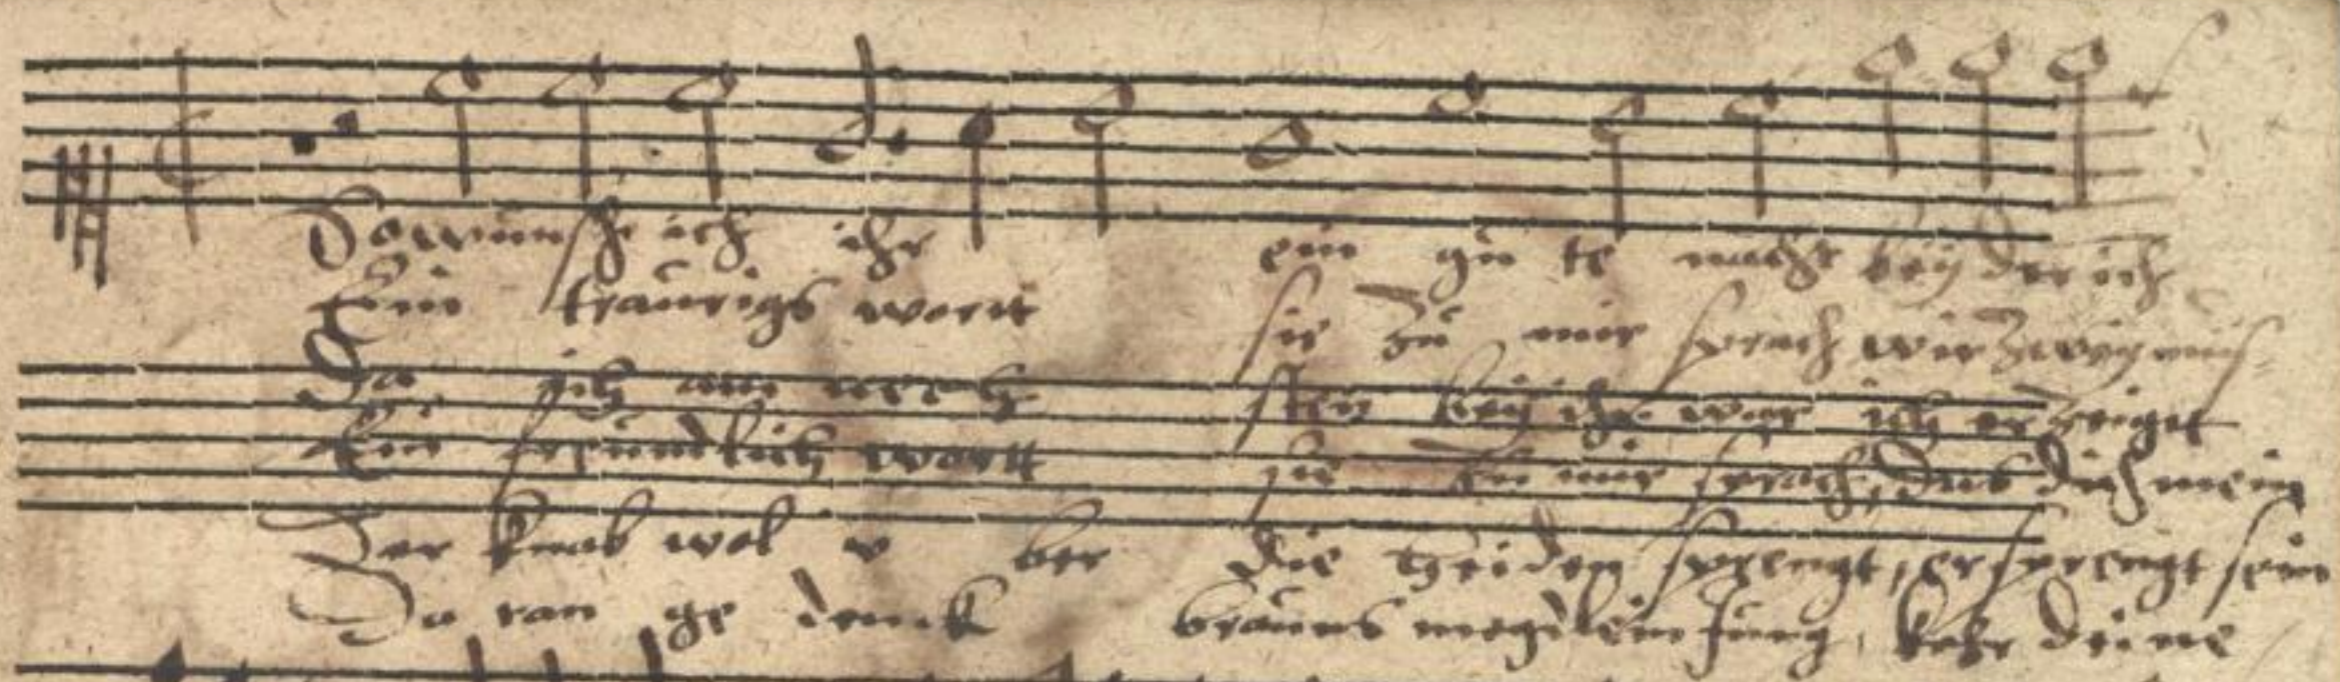 So wünsch ich ihr ein gu te nacht bey der ich
Ein traurigs wortt sie zu mir sprach wir zwey müs-
Da ich am ster bey ihr war ich er zeigtt
Ein freundlich wortt sie zu mir sprach, das dich mein
Der knab wol v ber die heiden sprengt, er sprengt sein
Da ran ge denck brauns megdlein jung, kehr deine